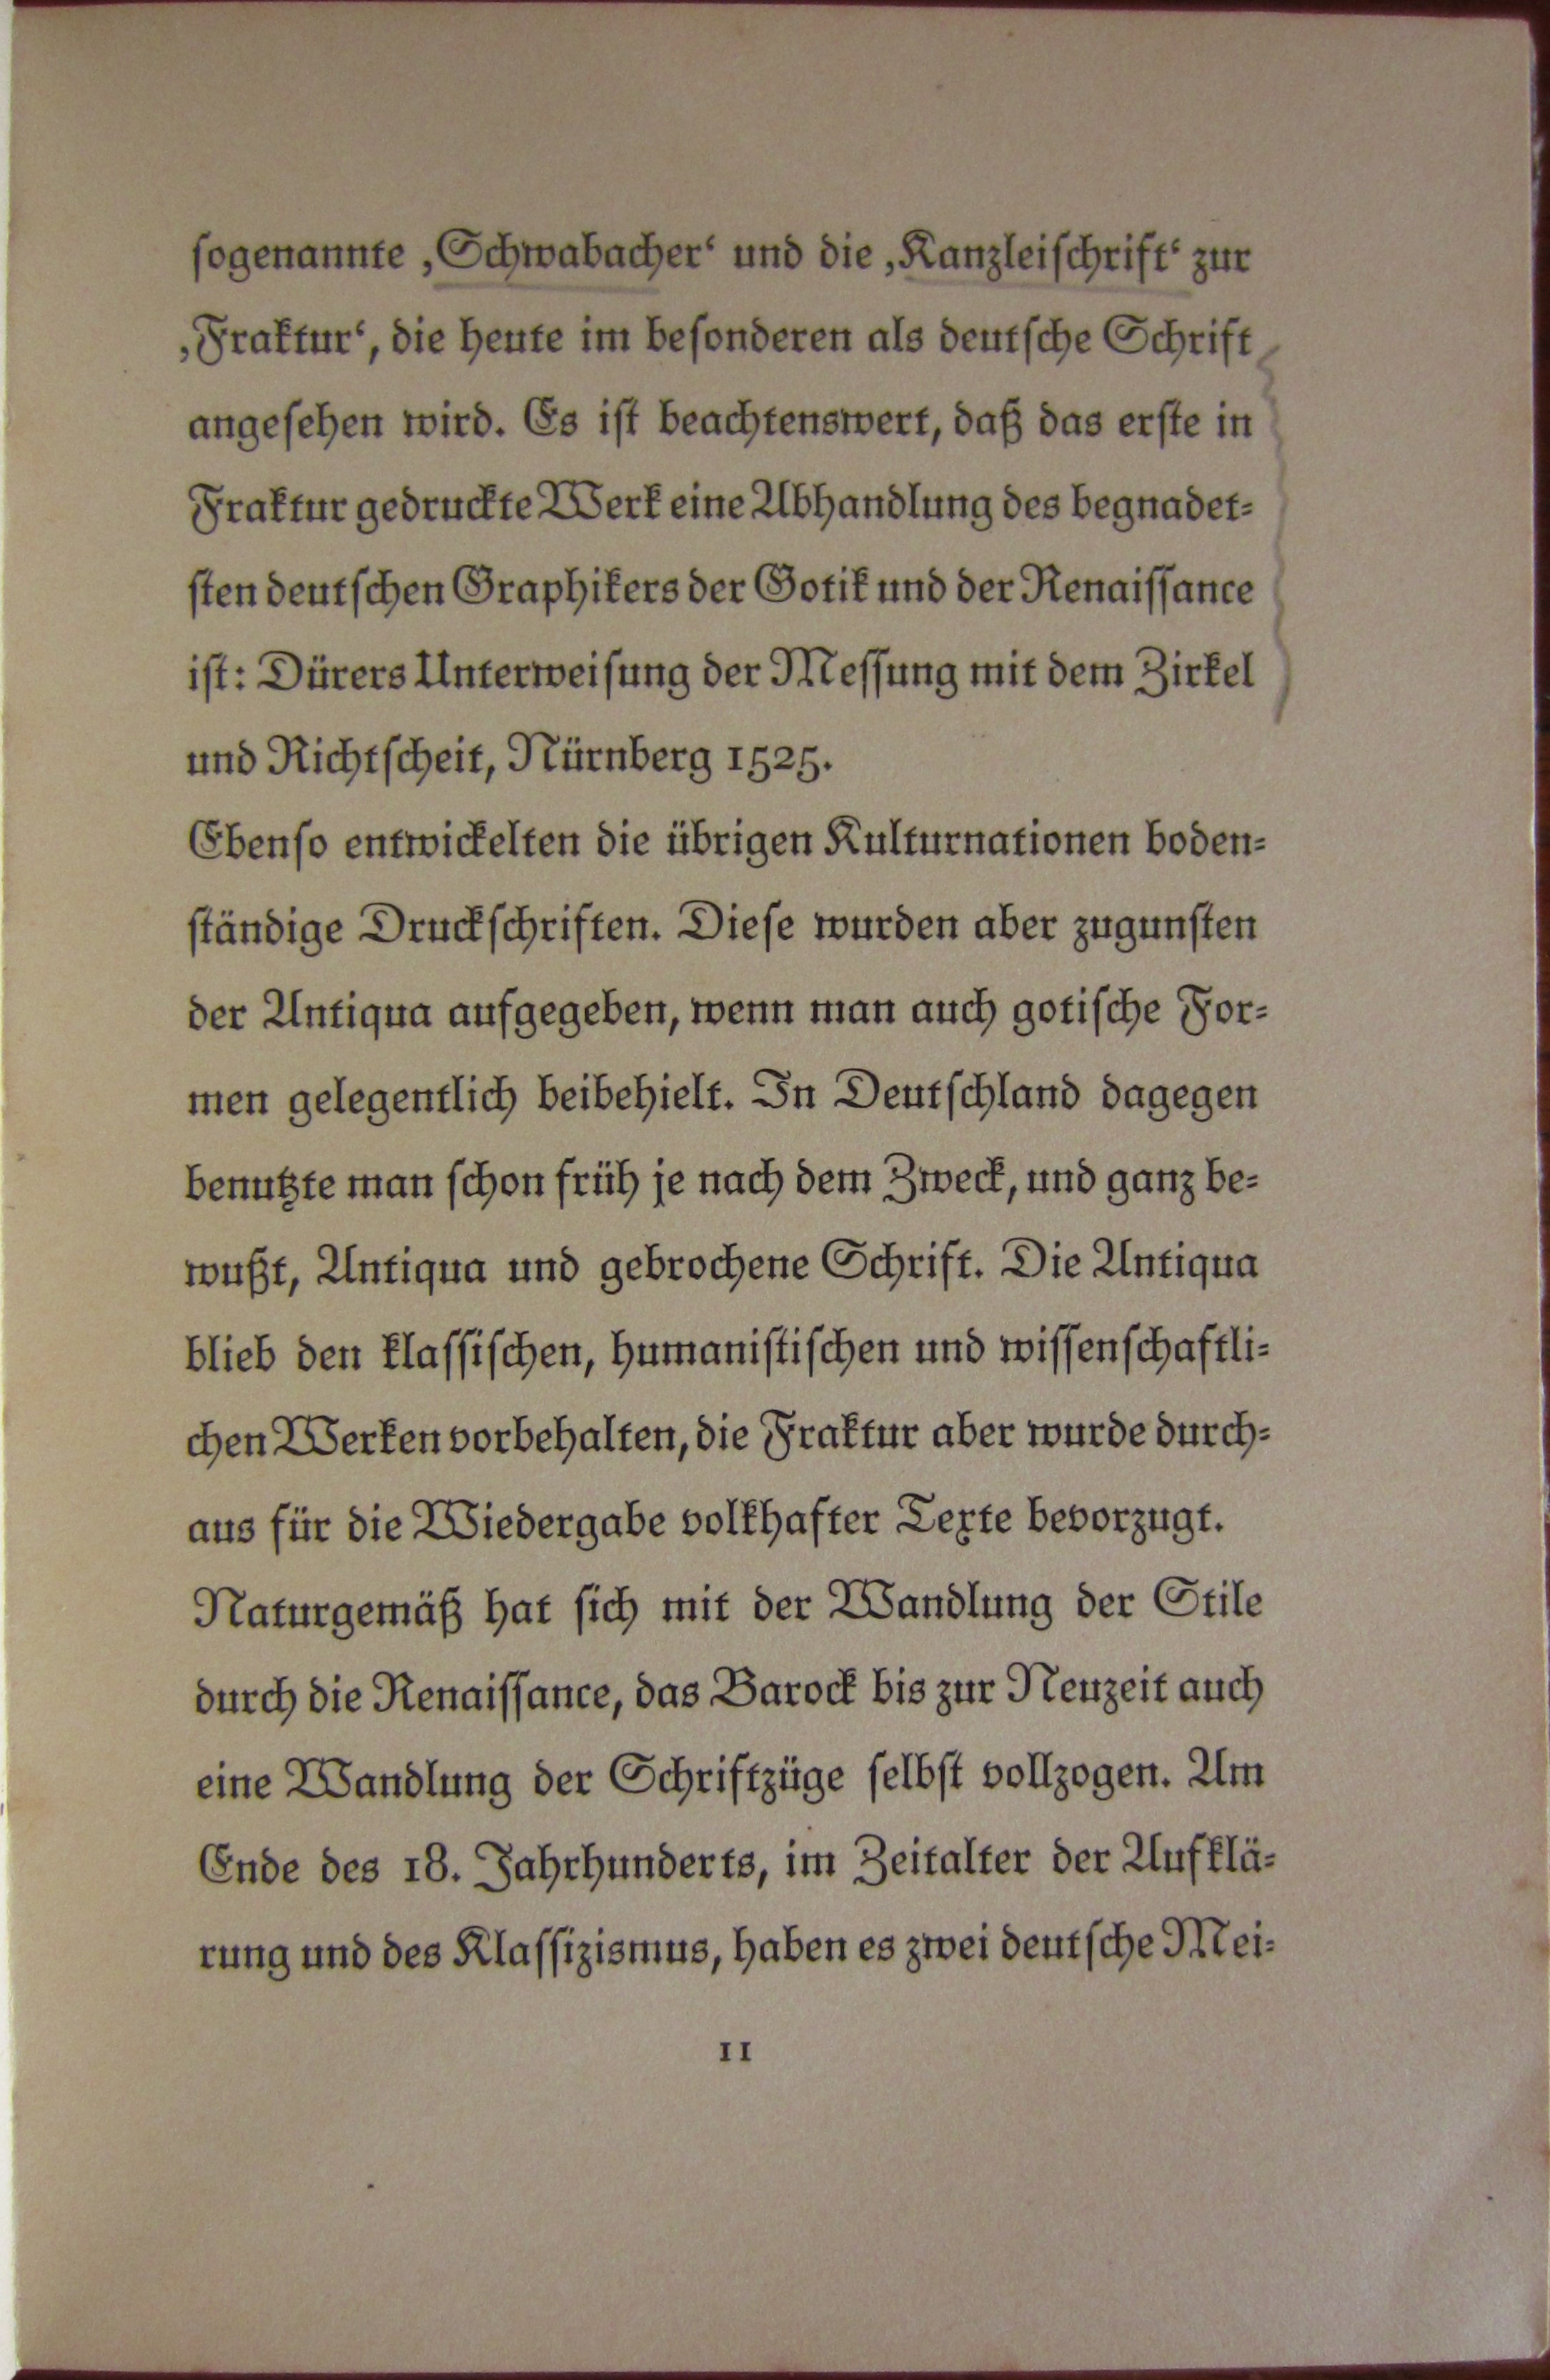 sogenannte ‚Schwabacher‘ und die ‚Kanzleischrift‘ zur
‚Fraktur‘, die heute im besonderen als deutsche Schrift
angesehen wird. Es ist beachtenswert, daß das erste in
Fraktur gedruckte Werk eine Abhandlung des begnadet-
sten deutschen Graphikers der Gotik und der Renaissance
ist: Dürers Unterweisung der Messung mit dem Zirkel
und Richtscheit, Nürnberg 1525.
Ebenso entwickelten die übrigen Kulturnationen boden-
ständige Druckschriften. Diese wurden aber zugunsten
der Antiqua aufgegeben, wenn man auch gotische For-
men gelegentlich beibehielt. In Deutschland dagegen
benutzte man schon früh je nach dem Zweck, und ganz be-
wußt, Antiqua und gebrochene Schrift. Die Antiqua
blieb den klassischen, humanistischen und wissenschaftli-
chen Werken vorbehalten, die Fraktur aber wurde durch-
aus für die Wiedergabe volkhafter Texte bevorzugt.
Naturgemäß hat sich mit der Wandlung der Stile
durch die Renaissance, das Barock bis zur Neuzeit auch
eine Wandlung der Schriftzüge selbst vollzogen. Am
Ende des 18. Jahrhunderts, im Zeitalter der Aufklä-
rung und des Klassizismus, haben es zwei deutsche Mei-
11